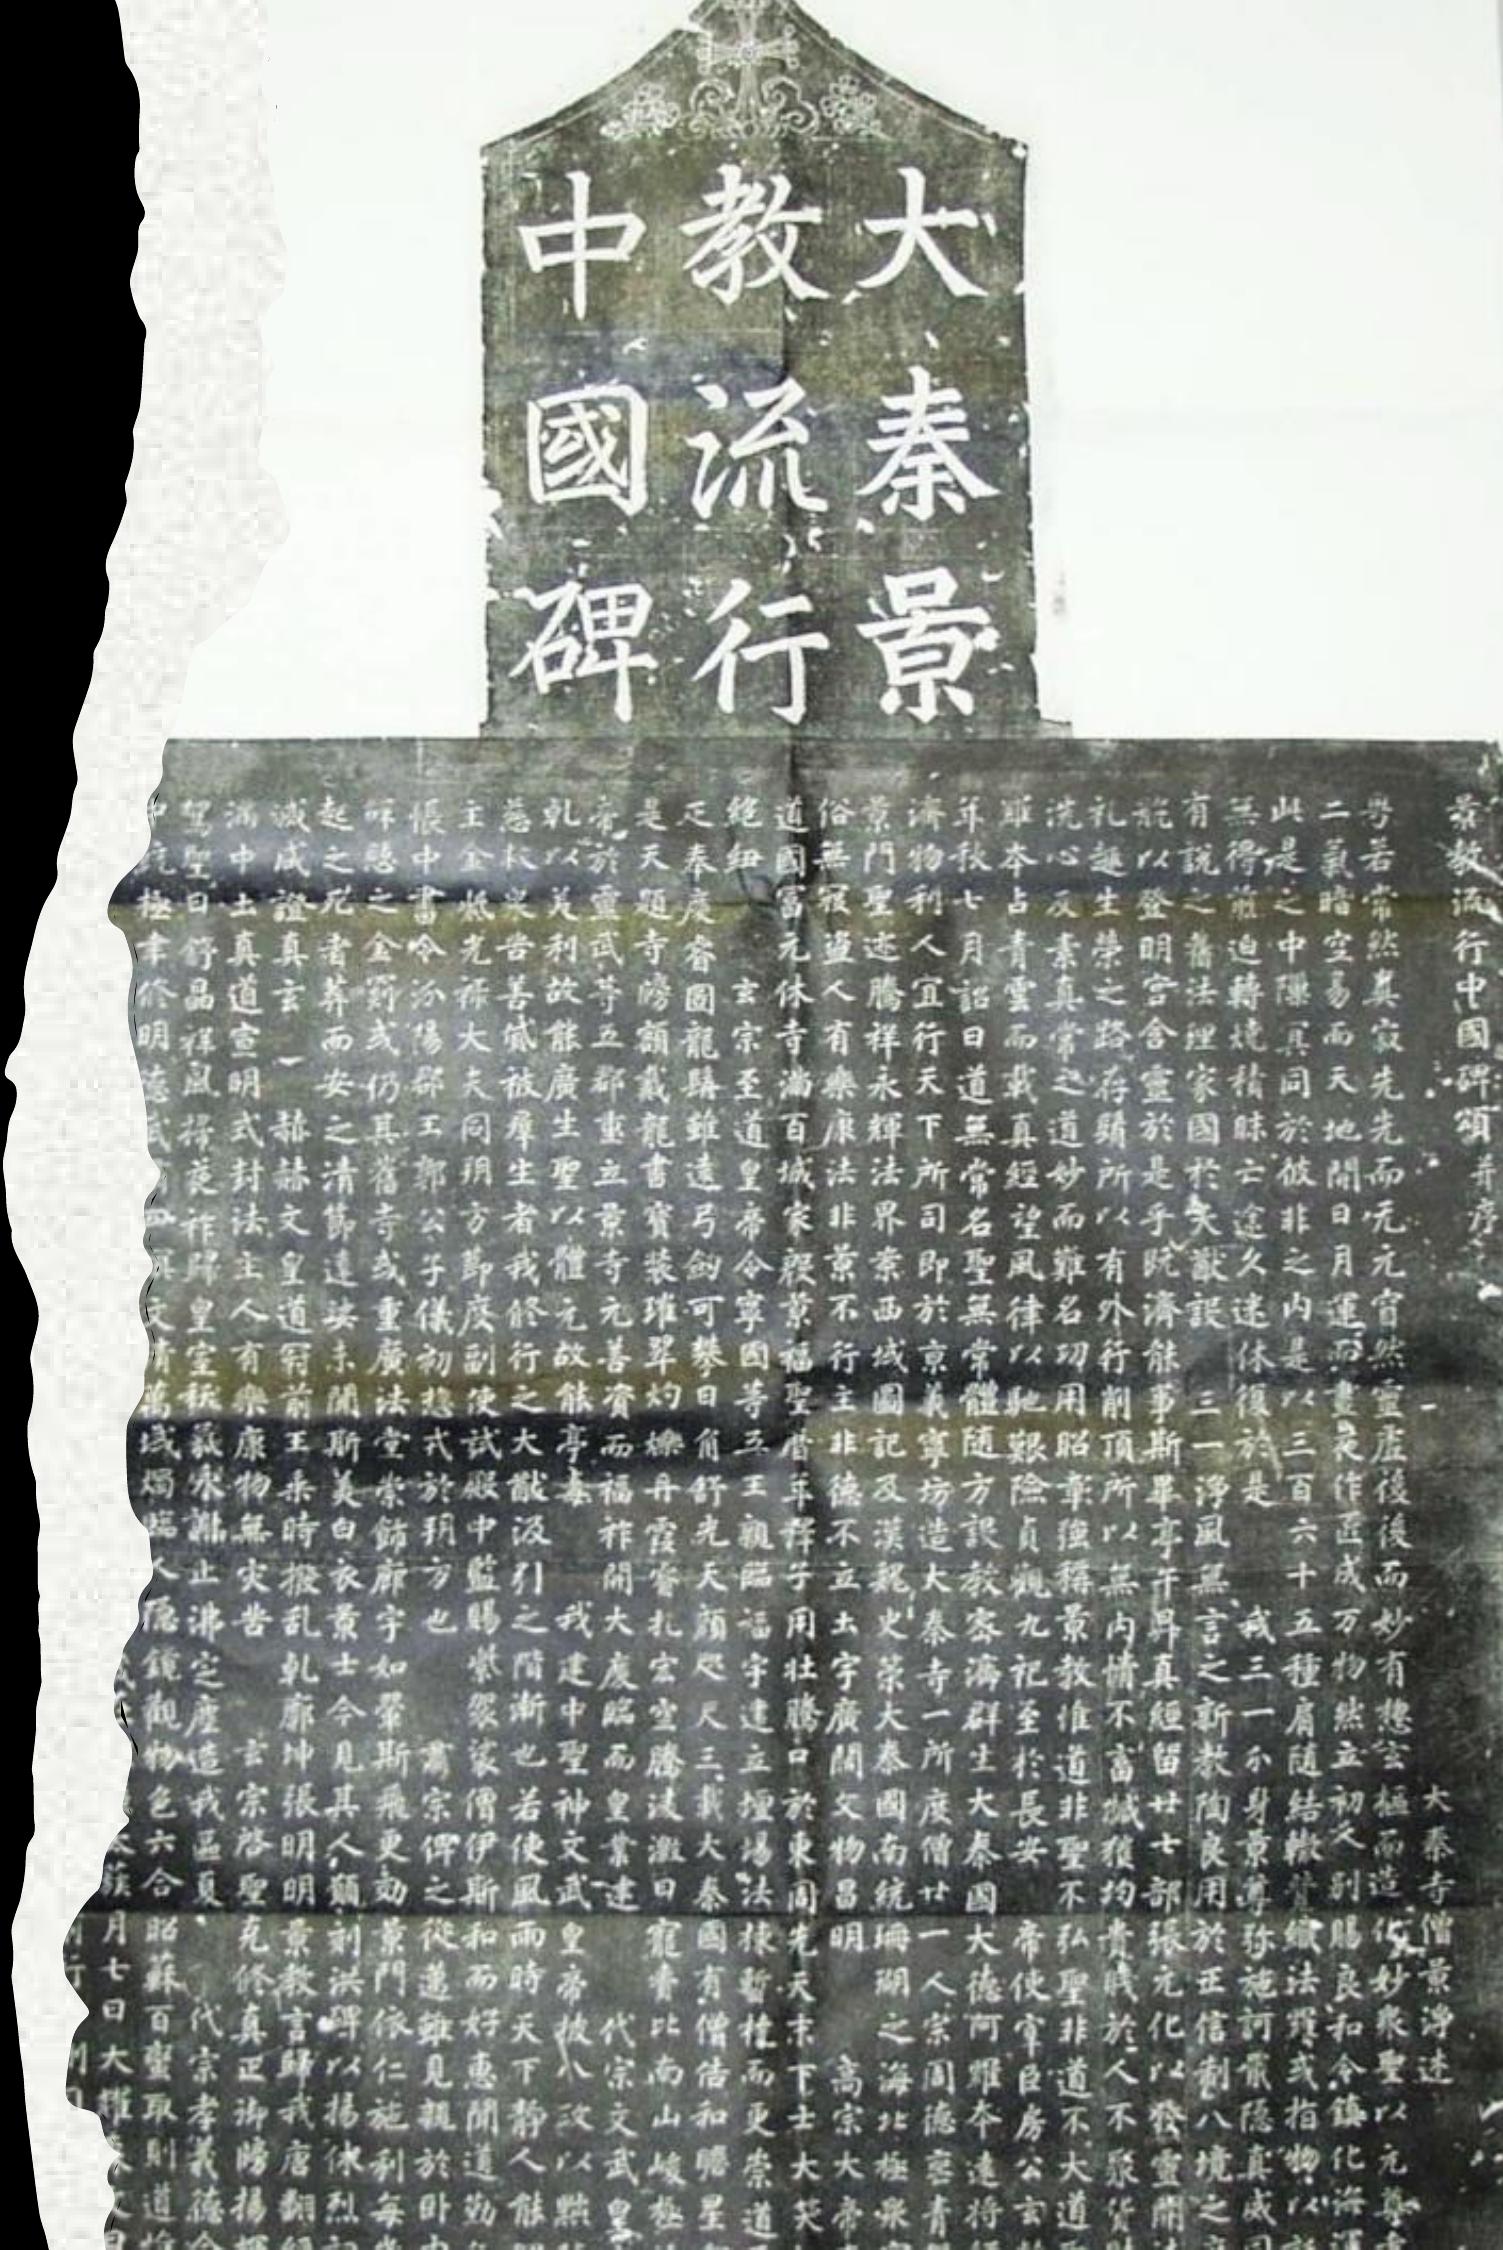 大秦景
教流行
中國碑
景教流行中國碑頌并序
大秦寺僧景淨述
粵若常然真寂先先而无元窅然靈虛後後而妙有惣玄樞而造化妙衆聖以元尊
二氣暗空易而天地開日月運而晝夜作匠成万物然立初人別賜良和令鎮化海渾
此是之中隟冥同於彼非之内是以三百六十五種肩隨結轍競織法羅或指物以託
無得煎迫轉燒積昧亡途久迷休復於是 我三一分身景尊弥施訶戢隱真威同
有說之舊法理家國於大猷設 三一淨風無言之新教陶良用於正信制八境之度
能以登明宮含靈於是乎既濟能事斯畢亭午昇真經留廿七部張元化以發靈關法
礼趣生榮之路存鬚所以有外行削頂所以無内情不畜臧獲均貴賤於人不聚貨財
洗心反素真常之道妙而難名功用昭彰強稱景教惟道非聖不弘聖非道不大道聖
羅本占青雲而載真經望風律以馳艱險貞觀九祀至於長安 帝使宰臣房公玄齡
年秋七月詔曰道無常名聖無常體隨方設教密濟群生大秦國大德阿羅本遠將經
濟物利人宜行天下所司即於京義寧坊造大秦寺一所度僧廿一人宗周德喪青
景門聖迹騰祥永輝法界案西域圖記及漢魏史策大秦國南統珊瑚之海北極衆寶
俗無寇盜人有樂康法非景不行主非德不立土宇廣闊文物昌明 高宗大帝
道國富元休寺滿百城家殷景福聖曆年釋子用壯騰口於東周先天末下士大笑
絶紐 玄宗至道皇帝令寧國等五王親臨福宇建立壇場法棟暫橈而更崇道
疋奉慶睿圖龍髯雖遠弓劍可攀日角舒光天顏咫尺三載大秦國有僧佶和瞻星
是天題寺牓額戴龍書寶裝璀翠灼爍丹霞睿扎宏空騰凌激日寵賚比南山峻極
帝於靈武等五郡重立景寺元善資而福祚開大慶臨而皇業建 代宗文武皇
乹以美利故能廣生聖以體元故能亭毒 我建中聖神文武皇帝披八政以黜
慈救衆苦善貸被群生者我修行之大猷汲引之階漸也若使風雨時天下靜人能
主金紫光祿大夫同朔方節度副使試殿中監賜紫袈裟僧伊斯和而好惠聞道勤
帳中書令汾陽郡王郭公子儀初惣戎於朔方也 肅宗俾之從邁雖見親於卧内
憩之金罽或仍其舊寺或重廣法堂崇飾廊宇如翬斯飛更効景門依仁施利每歲
起之死者葬而安之清節達娑未聞斯美白衣景士今見其人願刻洪碑以揚休烈詞
咸證真玄 赫赫文皇道冠前王乘時撥乱乹廓坤張明明景教言歸我唐翻經
滿中土真道宣明式封法主人有樂康物無災苦 玄宗啓聖克修真正御牓揚輝
駕聖日舒晶祥風掃夜祚歸皇室祅氛永謝止沸定塵造我區夏 代宗孝義德合
極聿修明德 文清萬域燭臨人隱鏡觀物色六合昭蘇百蠻取則道惟
太蔟月七日大耀